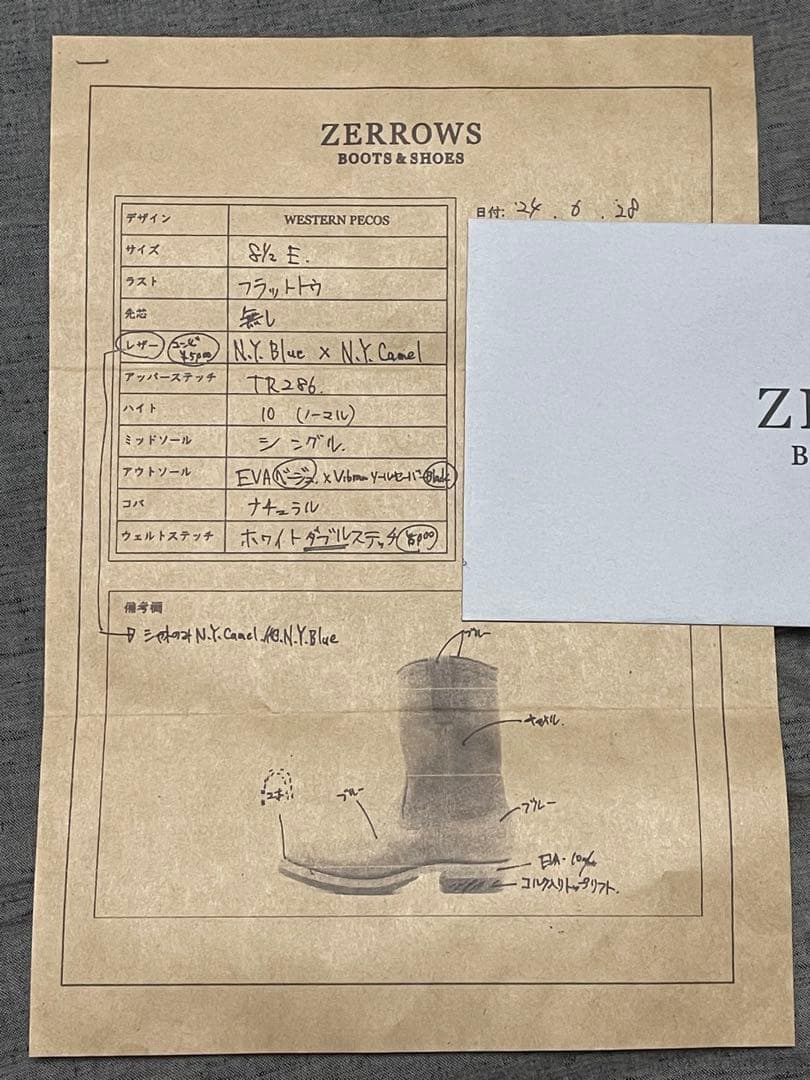 ZERROWS
BOOTS & SHOES
日付: '24 . 6 . 28
デザイン WESTERN PECOS
サイズ 8½ E.
ラスト フラットトウ
先芯 無し
レザー コンビ ¥5,000 N.Y. Blue × N.Y. Camel
アッパーステッチ TR286.
ハイト 10 (ノーマル)
ミッドソール シングル.
アウトソール EVA ベージュ × Vibram ソールセーバー Black
コバ ナチュラル
ウェルトステッチ ホワイトダブルステッチ
備考欄
N.Y. Camel 他 N.Y. Blue
ブルー
キャメル.
ブルー
ブルー
コルク入りトップリフト.
Z
B